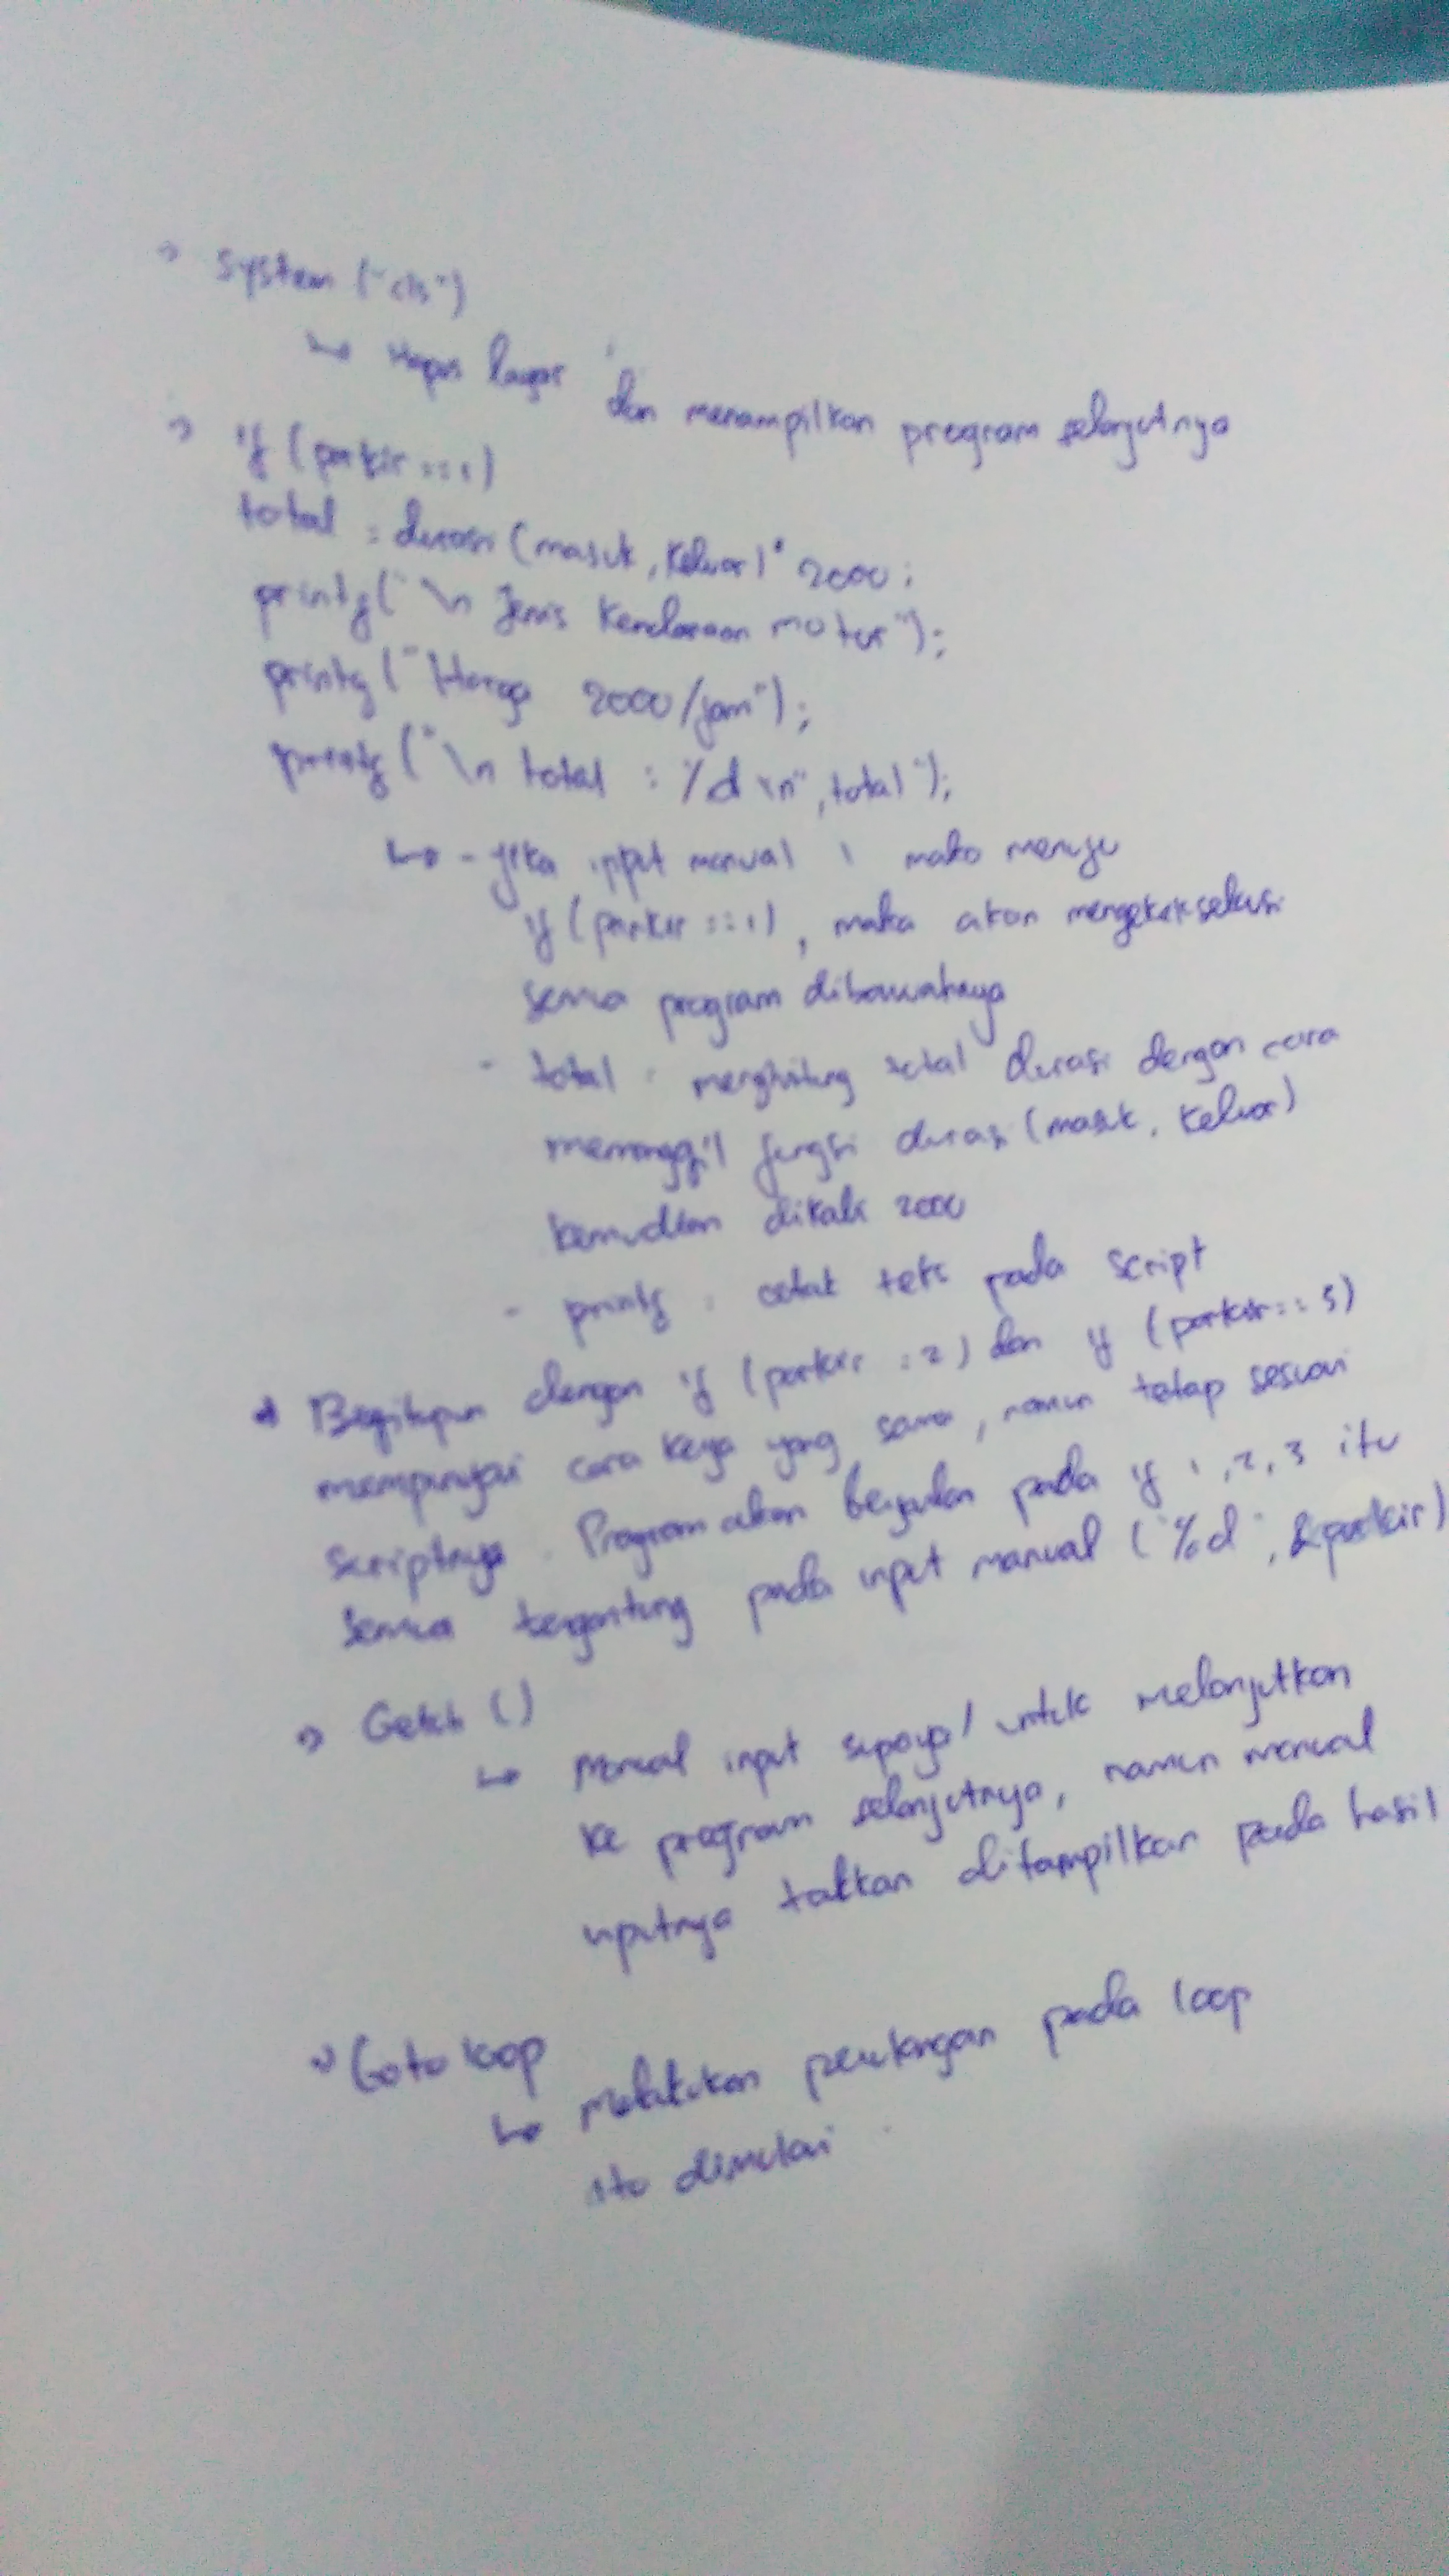 → System ("cls")
↳ Hapus layar dan menampilkan program selanjutnya
→ if (parkir == 1)
total = durasi (masuk, keluar) * 2000;
printf("\n Jenis Kendaraan motor");
printf("Harga 2000/jam");
printf("\n total : %d \n", total");
↳ - jika input manual 1 maka menuju
if (parkir == 1), maka akan mengeksekusi
semua program dibawahnya
- total : menghitung total durasi dengan cara
memanggil fungsi durasi (masuk, keluar)
kemudian dikali 2000
- printf : cetak teks pada script
Begitupun dengan if (parkir = 2) dan if (parkir ==
mempunyai cara kerja yang sama, namun tetap sesuai
scriptnya. Program akan berjalan pada if 1, 2, 3 itu
semua tergantung pada input manual ("%d", &parkir)
→ Getch ()
↳ Manual input supaya / untuk melanjutkan
ke program selanjutnya, namun manual
inputnya takkan ditampilkan pada hasil
→ Goto loop
↳ melakukan perulangan pada loop
itu dimulai